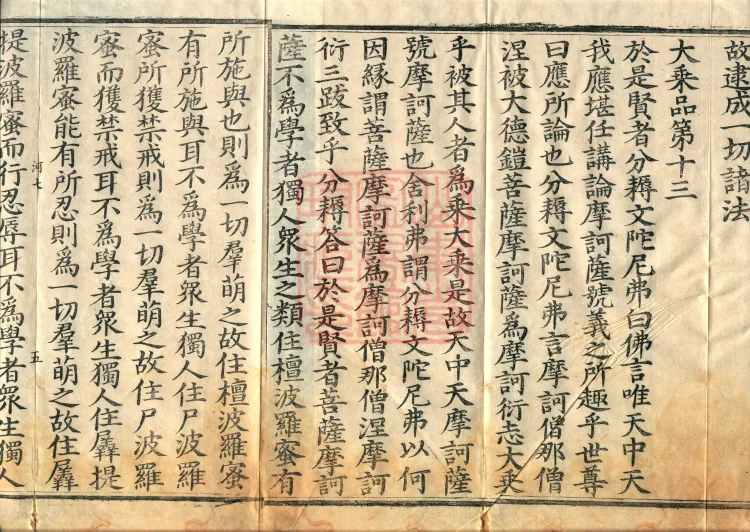 故逮成一切諸法
大乘品第十三
於是賢者分耨文陀尼弗曰佛言唯天中天
我應堪任講論摩訶薩號義之所趣乎世尊
曰應所論也分耨文陀尼弗言摩訶僧那僧
涅被大德鎧菩薩摩訶薩爲摩訶衍志大乘
乎被其人者爲乘大乘是故天中天摩訶薩
號摩訶薩也舍利弗謂分耨文陀尼弗以何
因緣謂菩薩摩訶薩爲摩訶僧那僧涅摩訶
衍三跋致乎分耨答曰於是賢者菩薩摩訶
薩不爲學者獨人眾生之類住檀波羅蜜有
所施與也則爲一切羣萌之故住檀波羅蜜
有所施與耳不爲學者眾生獨人住尸波羅
蜜所獲禁戒則爲一切羣萌之故住尸波羅
蜜而獲禁戒耳不爲學者眾生獨人住羼提
波羅蜜能有所忍則爲一切羣萌之故住羼
河七 五
提波羅蜜而行忍辱耳不爲學者眾生獨人